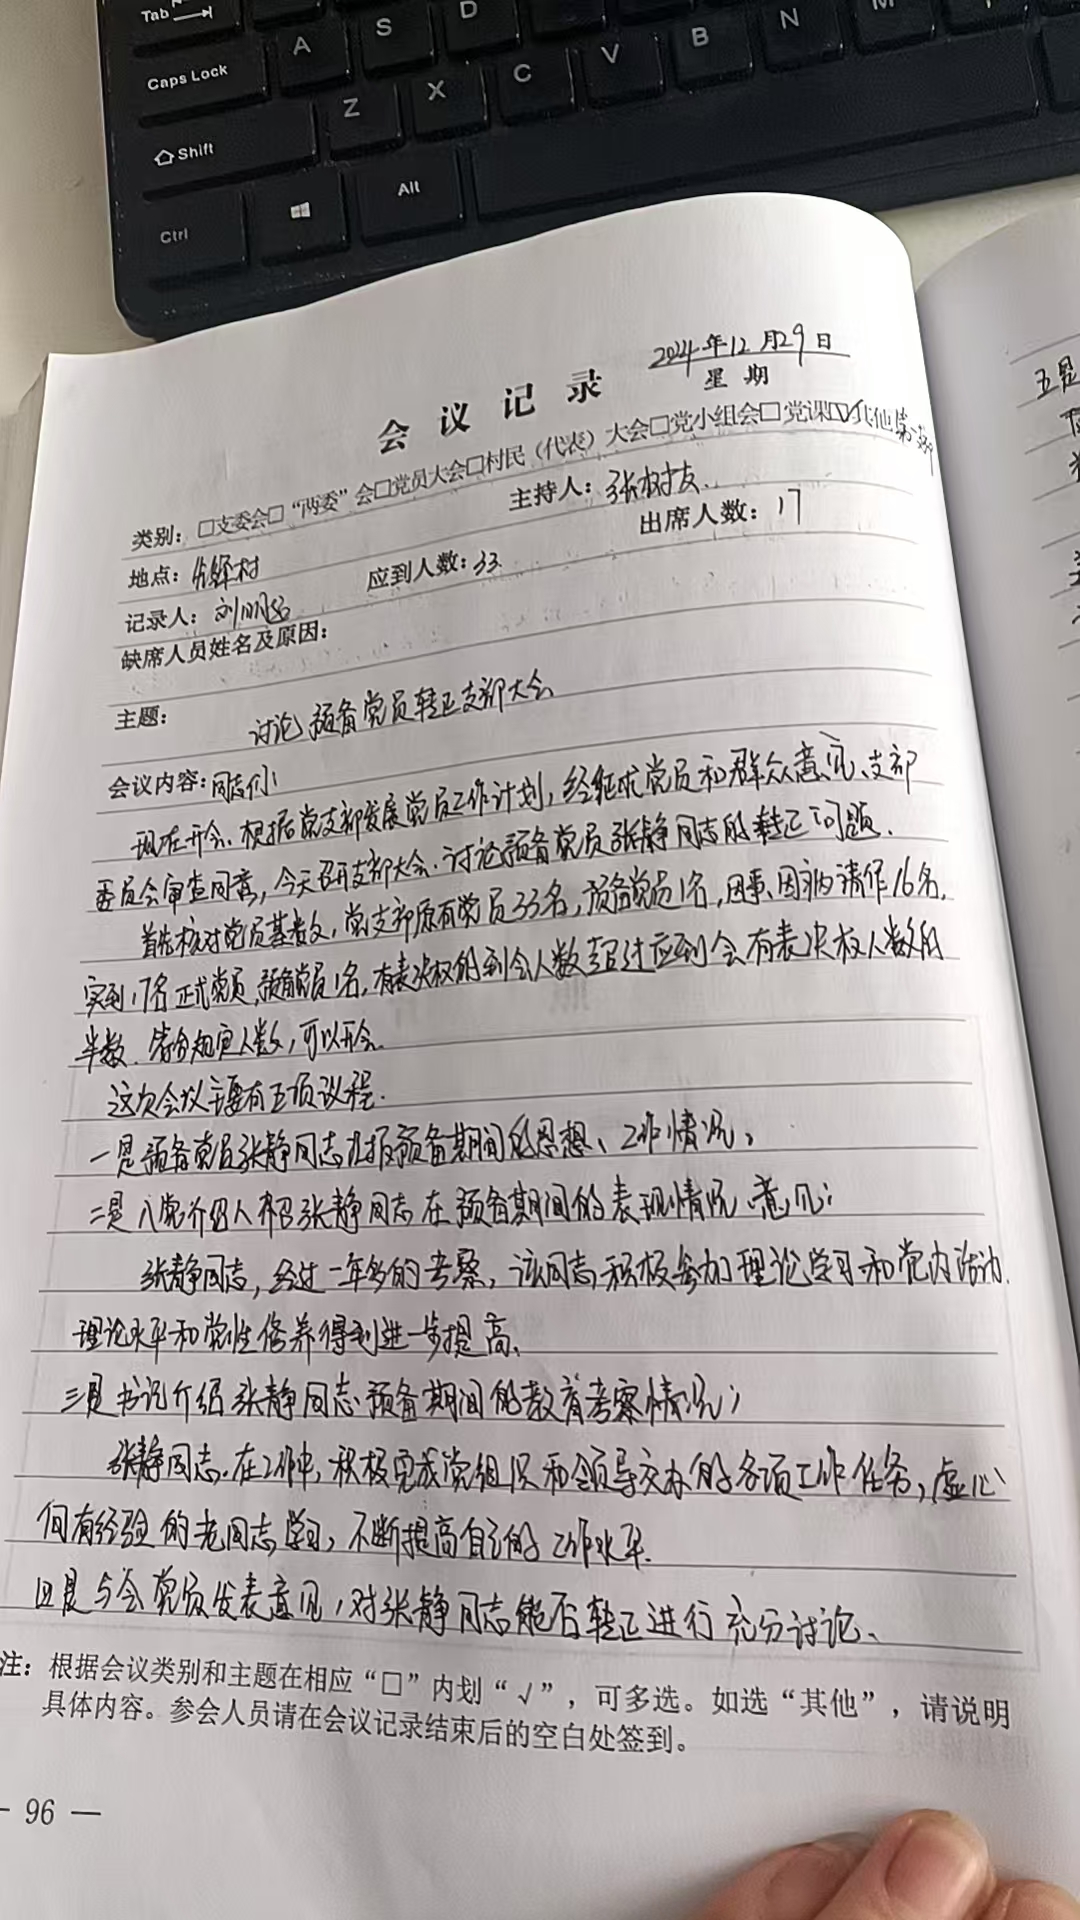 Tab
A
S
D
Caps Lock
Z
X
C
V
B
N
M
Shift
Ctrl
Alt
2024年12月29日
星 期
会 议 记 录
类别：□支委会□“两委”会□党员大会□村民（代表）大会□党小组会□党课☑其他第一支部
地点： 主持人：张树友
记录人：刘 应到人数：33 出席人数：17
缺席人员姓名及原因：
主题： 讨论预备党员转正支部大会
会议内容：同志们：
现在开会。根据党支部发展党员工作计划，经征求党员和群众意见、支部
委员会审查同意，今天召开支部大会。讨论预备党员张静同志的转正问题。
首先核对党员基数，党支部原有党员33名，预备党员1名，因事、因病请假16名，
实到17名正式党员，预备党员1名，有表决权的到会人数超过应到会有表决权人数的
半数、符合规定人数，可以开会。
这次会议主要有五项议程。
一是预备党员张静同志汇报预备期间的思想、工作情况；
二是入党介绍人介绍张静同志在预备期间的表现情况、意见；
张静同志，经过一年多的考察，该同志积极参加理论学习和党内活动、
理论水平和党性修养得到进一步提高。
三是书记介绍张静同志预备期间的教育考察情况；
张静同志，在工作中，积极完成党组织和领导交办的各项工作任务，虚心
向有经验的老同志学习，不断提高自己的工作水平。
四是与会党员发表意见，对张静同志能否转正进行充分讨论、
注：根据会议类别和主题在相应“□”内划“√”，可多选。如选“其他”，请说明
具体内容。参会人员请在会议记录结束后的空白处签到。
— 96 —
五是